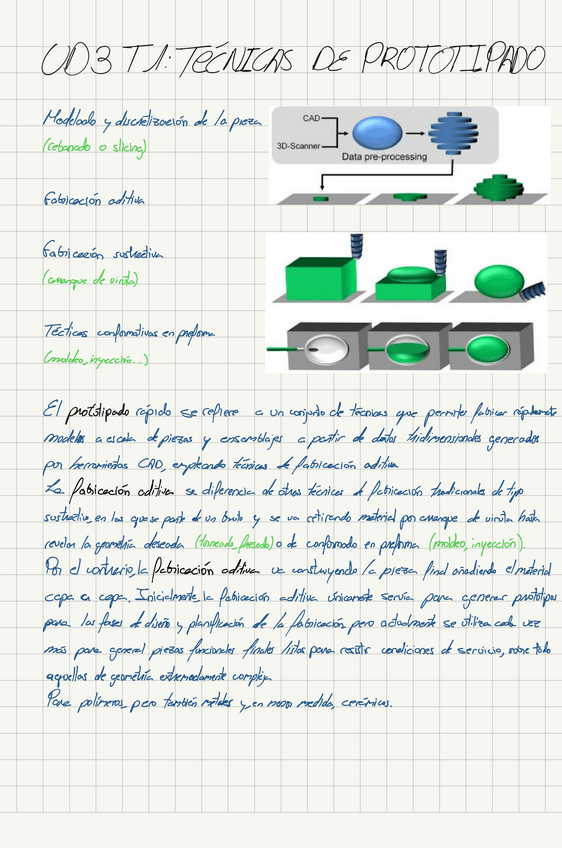 UD3 T1: TÉCNICAS DE PROTOTIPADO
Modelado y discretización de la pieza
(rebanado o slicing)
CAD
3D-Scanner
Data pre-processing
Fabricación aditiva
Fabricación sustractiva
(arranque de viruta)
Técticas conformativas en preforma
(moldeo, inyección...)
El prototipado rápido se refiere a un conjunto de técnicas que permiten fabricar rápidamente
modelos a escala de piezas y ensamblajes a partir de datos tridimensionales generados
por herramientas CAD, empleando técnicas de fabricación aditiva
La fabricación aditiva se diferencia de otras técnicas de fabricación tradicionales de tipo
sustractivo, en las que se parte de un bruto y se va retirando material por arranque de viruta hasta
revelar la geometría deseada (torneado, fresado) o de conformado en preforma (moldeo, inyección).
Por el contrario, la fabricación aditiva va construyendo la pieza final añadiendo el material
capa a capa. Inicialmente, la fabricación aditiva únicamente servía para generar prototipos
para las fases de diseño y planificación de la fabricación pero actualmente se utiliza cada vez
más para general piezas funcionales finales listas para resistir condiciones de servicio, sobre todo
aquellas de geometría extremadamente compleja
Para polímeros, pero también metales y, en menor medida, cerámicas.